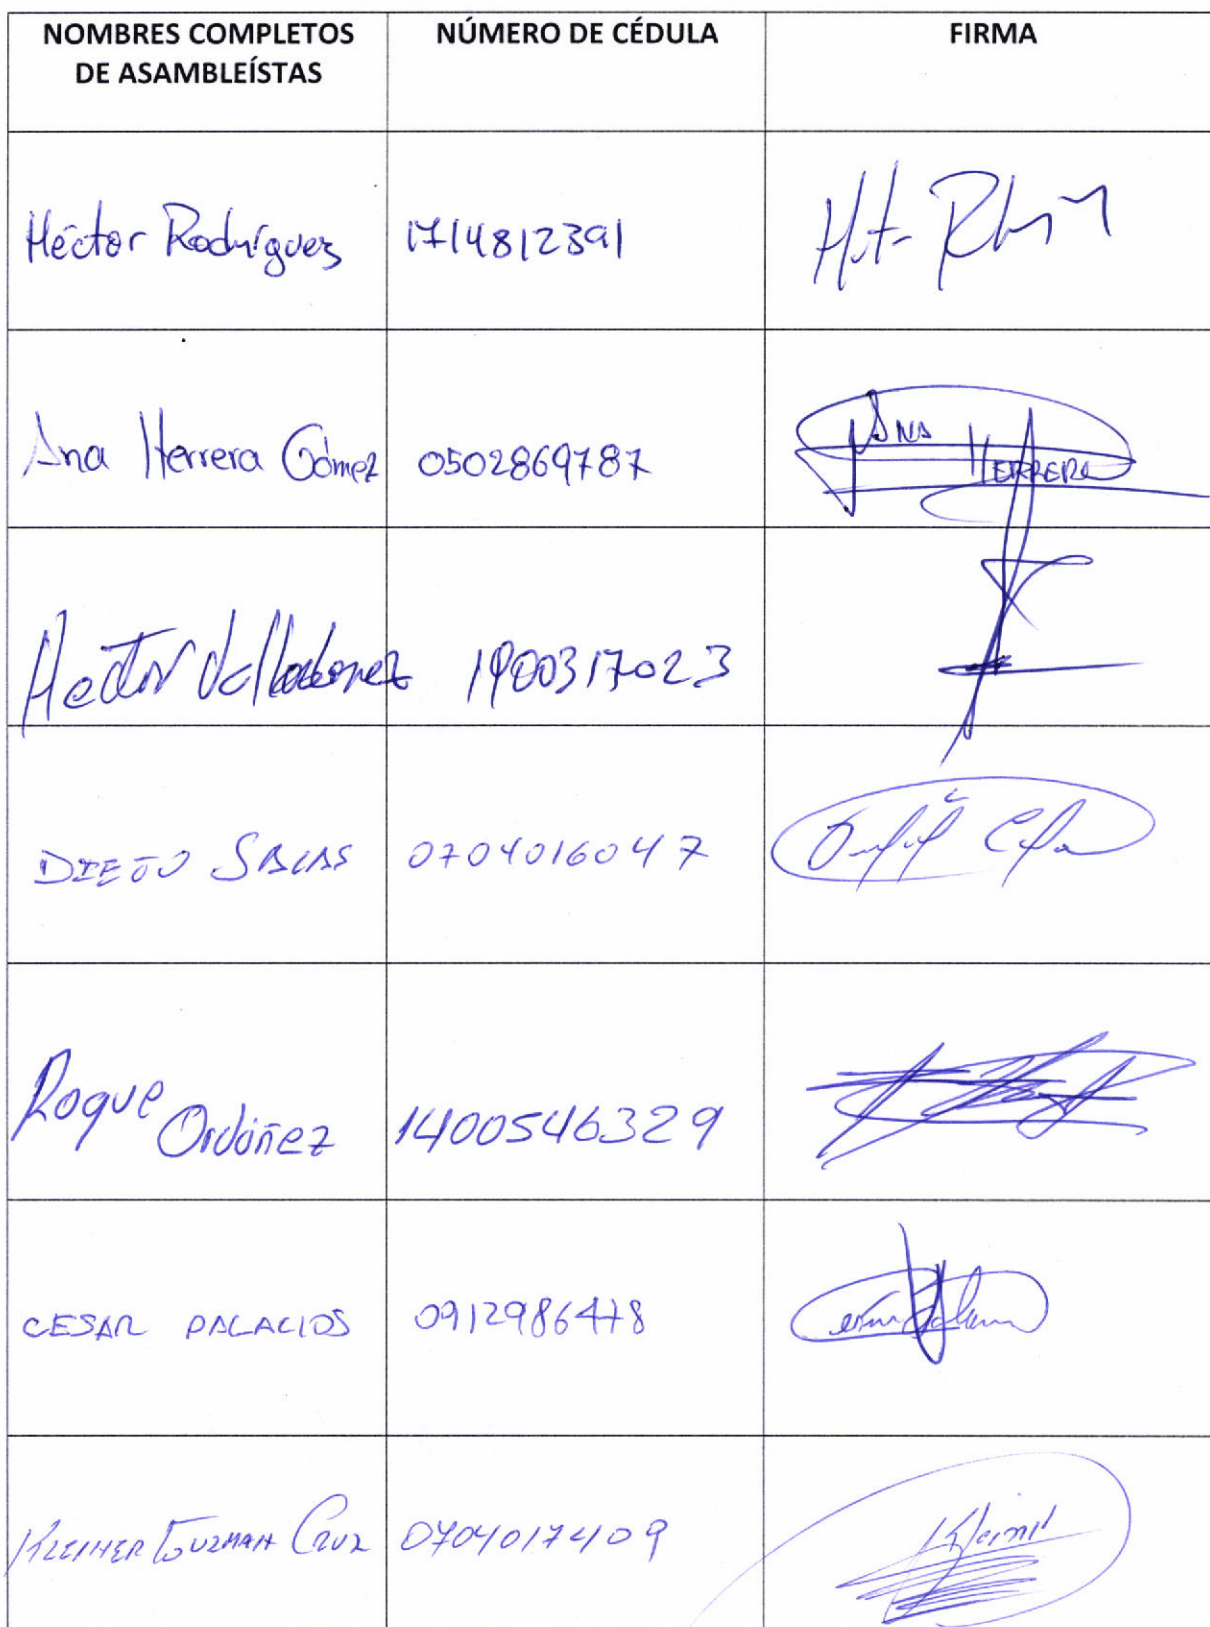 NOMBRES COMPLETOS
DE ASAMBLEÍSTAS
NÚMERO DE CÉDULA
FIRMA
Héctor Rodríguez 1714812391
Ana Herrera Gómez 0502869787 ANA HERRERA
Hector Valladarez 1900317023
DIEGO SALAS 0704016047
Roque Ordóñez 1400546329
CESAR PALACIOS 0912986478
KLEINER GUZMAN CRUZ 0704017409